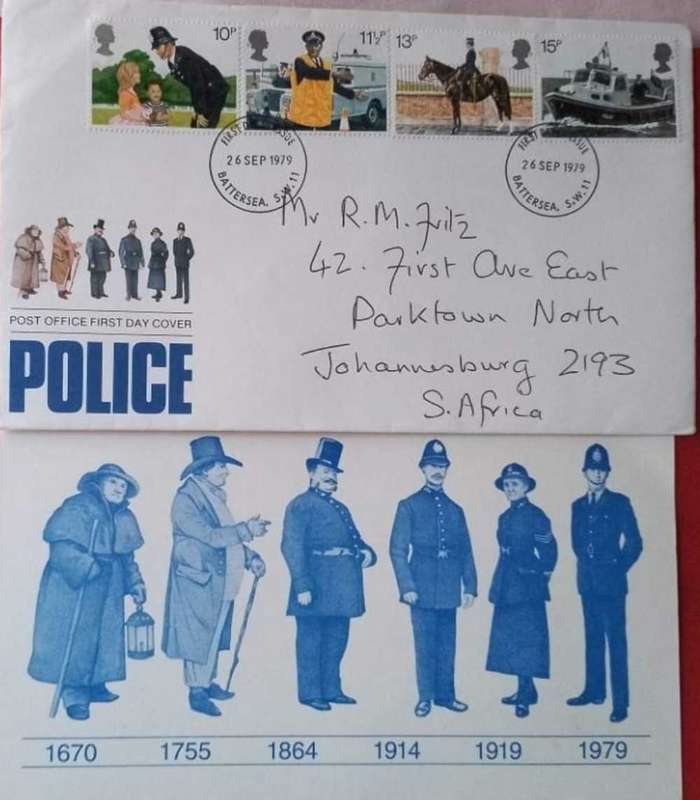 10P
11½P
13P
15P
FIRST DAY OF ISSUE
26 SEP 1979
BATTERSEA. S.W.11
FIRST DAY OF ISSUE
26 SEP 1979
BATTERSEA. S.W.11
Mr R.M. Fritz
42. First Ave East
Parktown North
Johannesburg 2193
S. Africa
POST OFFICE FIRST DAY COVER
POLICE
1670 1755 1864 1914 1919 1979